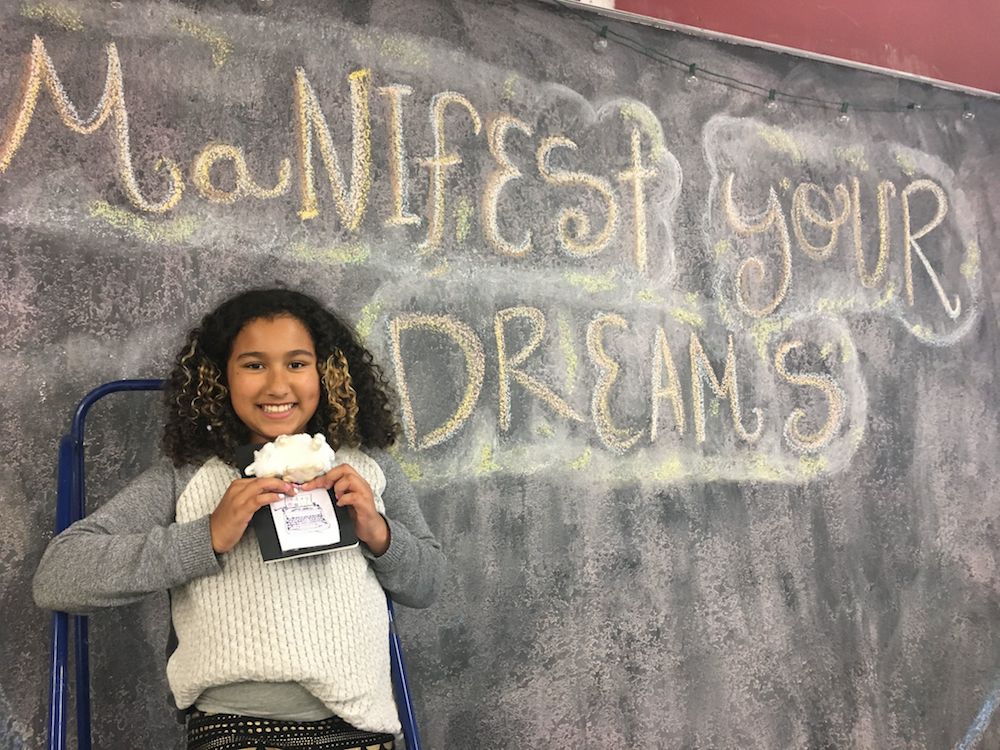 MaNIfEst YOUR
DREAMS